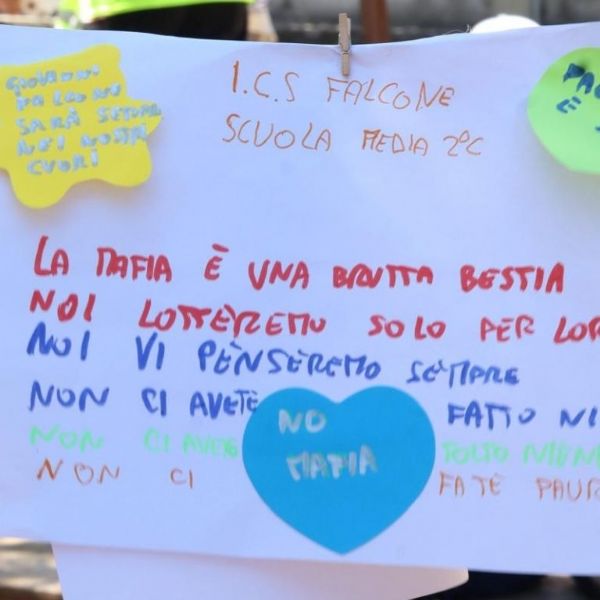 GIOVANNI
FALCONE
SARÀ SEMPRE
NEI NOSTRI
CUORI
I.C.S FALCONE
SCUOLA MEDIA 2°C
È
LA MAFIA È UNA BRUTTA BESTIA
NOI LOTTEREMO SOLO PER LOR
NOI VI PENSEREMO SEMPRE
NON CI AVETE FATTO NI
NON CI AVETE TOLTO NIEN
NON CI FATE PAUR
NO
MAFIA